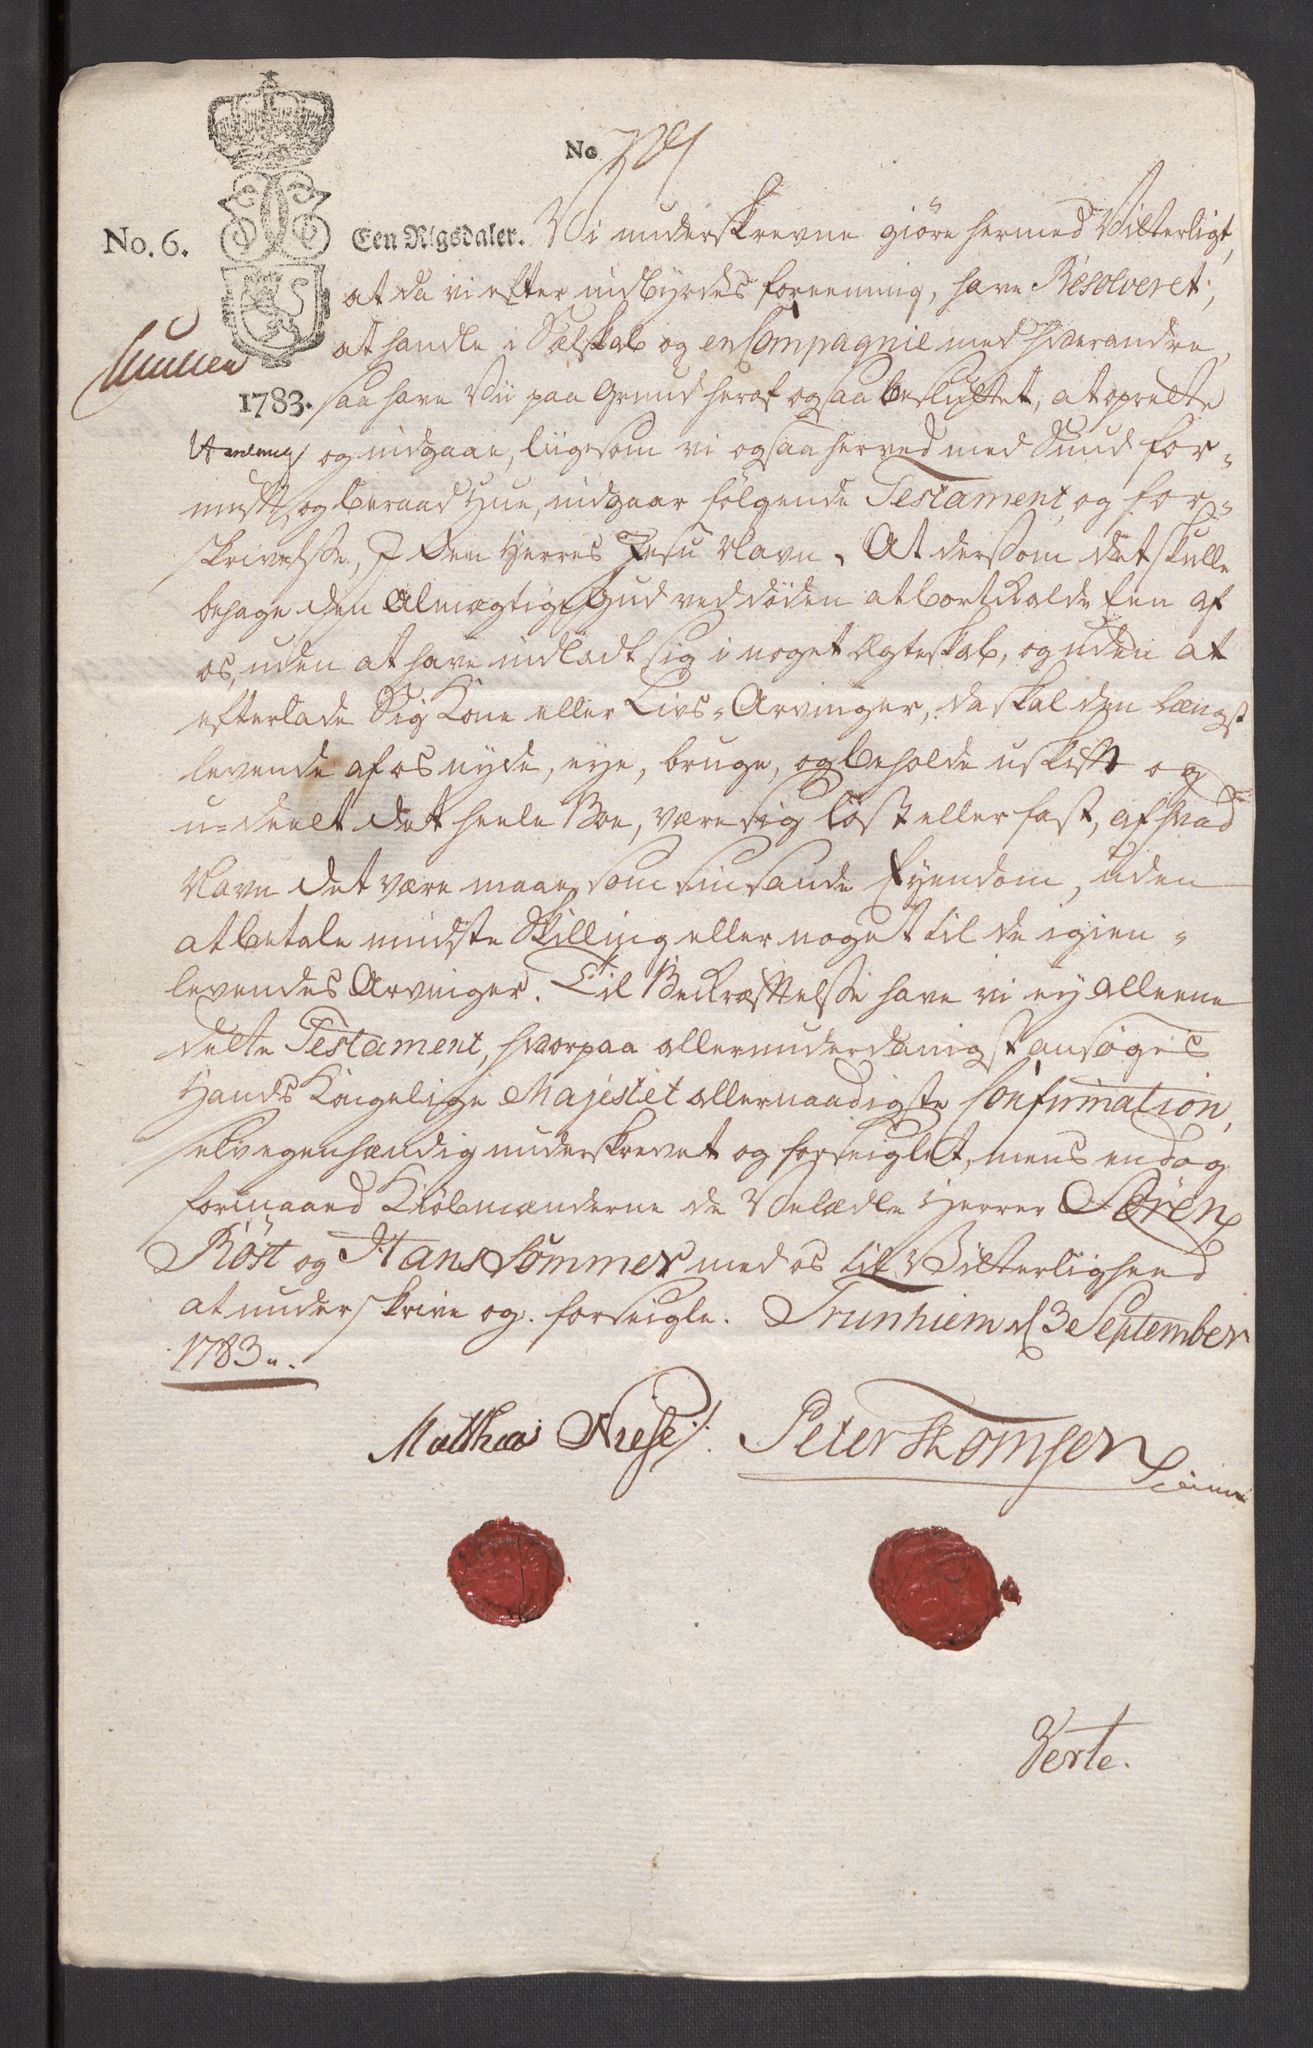 No
No. 6.
Een Rigsdaler. Vi underskrevne giöre hermed Vitterligt,
at da vi efter indbyrdes foreening, have Resolveret,
at handle i Sælskab og en Compagnie med hverandre,
1783. saa have Vii paa Grund heraf ogsaa besluttet, at oprette
og indgaae, liigesom vi ogsaa herved med Sund for-
nuft, og beraad Hue, indgaar fölgende Testament og for-
skrivelsse, I Den Herres Jesu Navn. At dersom det skulle
behage den Almægtige Gud ved döden at bortkalde Een af
os, uden at have indladt sig i noget Ægteskab, og uden at
efterlade Sig Kone eller Livs-Arvinger, da skal den længst
levende af os nyde, eye, bruge, og beholde uskift og
u-deelt det heele Boe, være sig löst eller fast, af hvad
Navn det være maae, som sin sande Eyendom, uden
at betale mindste Skilling eller noget til de igien-
levendes Arvinger. Til Bekræfttelsse have vi ey alleene
dette Testament, hvorpaa allerunderdanigst ansöges
Hands Kongelige Majestet allernaadigste Confirmation,
selvegenhændig underskrevet og forseiglet, mens endog
formaaed Kiöbmænderne de Velædle Herrer Sören
Röst og Hans Sommer med os til Vitterlighed
at underskrive og forseigle. Trunhiem d 3e September
1783.
Matthias Peter Thomsen
Verte.